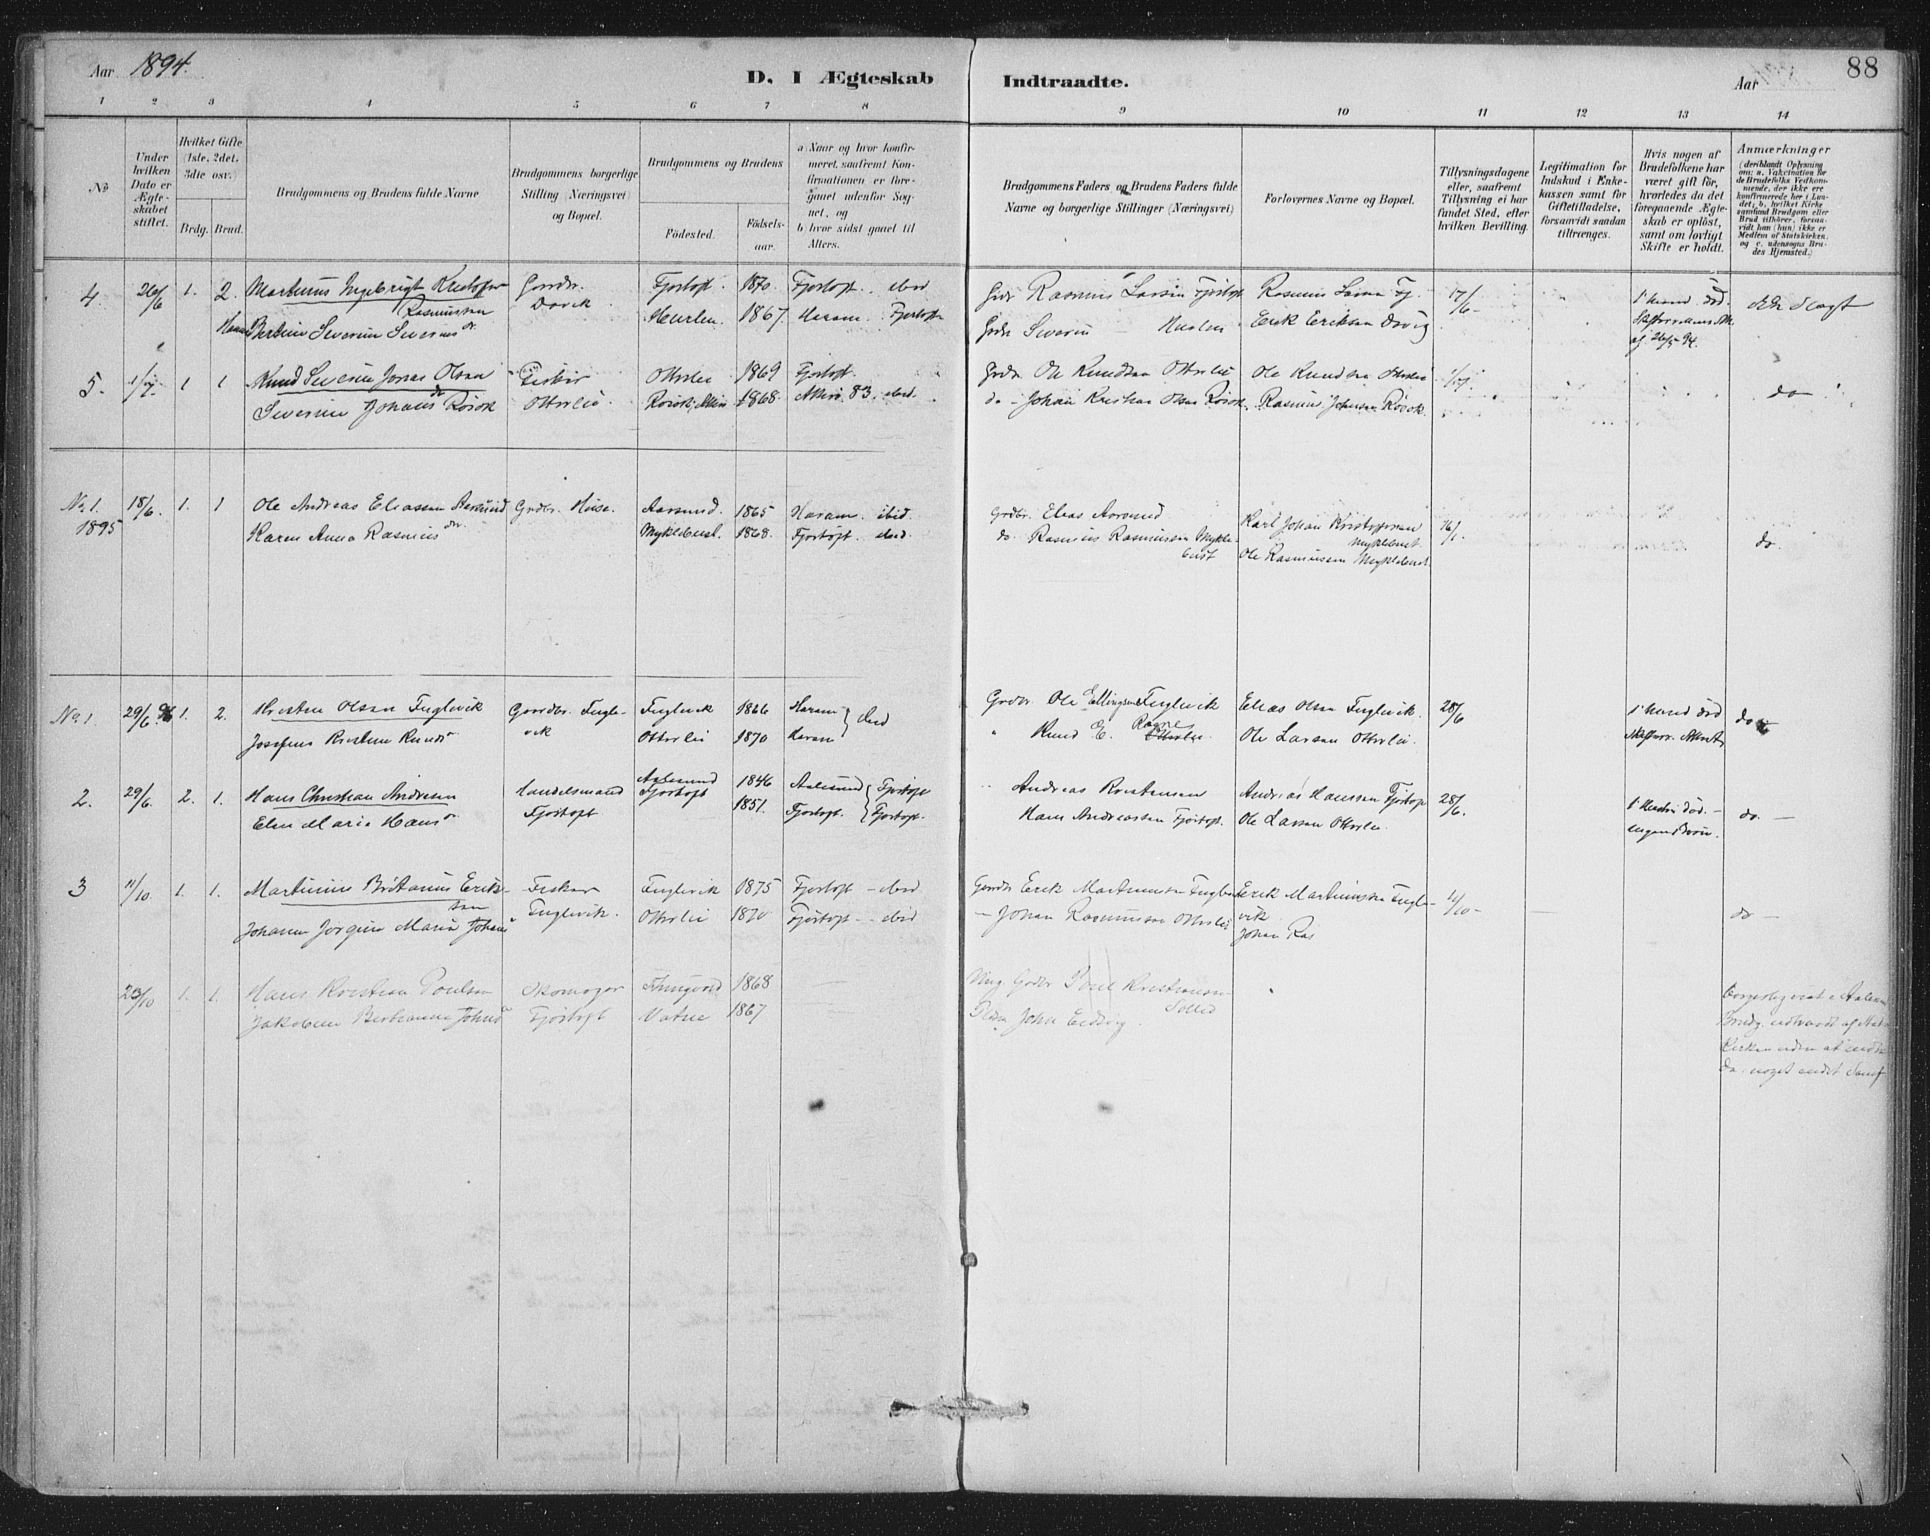 Aar 1894.
D. I Ægteskab Indtraadte.
Aar
88
1 2 3 4 5 6 7 8 9 10 11 12 13 14
No
Under hvilken Dato er Ægteskabet stiftet.
Hvilket Gifte (1ste, 2det, 3die osv.)
Brdg. Brud.
Brudgommens og Brudens fulde Navne
Brudgommens borgerlige Stilling (Næringsvei) og Bopæl.
Brudgommens og Brudens
Fødested.
Fødselsaar.
a) Naar og hvor konfirmeret, saafremt Konfirmationen er foregaaet udenfor Sognet, og
b) hvor sidst gaaet til Alters.
Brudgommens Faders og Brudens Faders fulde Navne og borgerlige Stillinger (Næringsvei)
Forlovernes Navne og Bopæl.
Tillysningsdagene eller, saafremt Tillysning ei har fundet Sted, efter hvilken Bevilling.
Legitimation for Indskud i Enkekassen samt for Giftetilladelse, forsaavidt saadan tiltrænges.
Hvis nogen af Brudefolkene har været gift før, hvorledes da det foregaaende Ægteskab er opløst, samt om lovligt Skifte er holdt.
Anmærkninger
(deriblandt Oplysning om: a. Vakcination for de Brudefolks Vedkommende, der ikke ere konfirmerede her i Landet; b. hvilket Kirkesamfund Brudgom eller Brud tilhører, forsaavidt han (hun) ikke er Medlem af Statskirken, og c. udensogns Brudes Hjemsted.)
4 26/6 1. 2. Martinus Ingebrigt Kristoffer Gaardbr. Fjortoft. 1870 Fjortoft. ibid Grdr Rasmus Larsen Fjørtoft Rasmus Larsen Fj. 17/6 1' Mand død ikke Slægt
Rasmussen Davik
Bertine Severine Severinsdr 1867 Haram. Fjortoft Grdr Severin Erik Eriksen Davig
af 26/5 94.
5. 1/7 1 1 Knud Severin Jonas Olsen Fisker Otterlei 1869 Fjortoft. Grdr. Ole Knudsen Otterlei Ole Knudsen Otterlei 1/7 do
Severine Johans dr Røsok Otterlei. 1868 83. ibid. do - Johan Kristian Olsen Røsok. Rasmus Johnsen Røsok.
No. 1. 18/6. 1. 1 Ole Andreas Eliassen Aarsund Grdbr. Huse. Aarsund. 1865 Haram. ibid. Grdbr. Elias Aarsund Karl Johan Kristoffersen 16/1. do.
1895 Karen Anna Rasmusdr Myklebust. 1868. Fjortoft. ibid. do. Rasmus Rasmussen Myklebust Myklebust.
Ole Rasmussen Myklebust.
No. 1. 29/6 96 1. 2. Kristen Olsen Fuglevik Gaardbr. Fuglevik Fuglevik 1866 Haram ibid Grdbr Ole Ellingsen Fuglevik Elias Olsen Fuglevik. 28/6 1' Mand død do
Josefine Kristine Knuds Otterlei 1870 Haram " Knud E. Otterlei. Ole Larsen Otterlei.
2. 29/6. 2. 1. Hans Christian Andresen Handelsmand Aalesund 1846 Aalesund Fjortoft " Andreas Kristensen Andreas Hanssen Fjørtoft 28/6. 1' Hustru død. - do. -
Elen Marie Hansdr Fjortoft Fjortoft 1851. Fjortoft. Fjortoft. Hans Andreassen Fjørtoft. Ole Larsen Otterlei. ingen Børn.
3 11/10 1. 1. Martinius Britanus Eriksen Fisker Fuglevik 1875 Fjortoft - ibid Gaardbr Erik Martinussen Fuglevik Erik Martinussen Fuglevik 11/10 - - do -
Johanne Jorgine Marie Johans Fuglevik. Otterlei 1870 Fjortoft - ibid - Johan Rasmussen Otterlei Johan Ras
23/10 1. 1. Hans Kristian Poulsen Skomager 1868 - Grdbr Poul Kristiansen
Jakobine Bertheanne Johns Fjortoft Vatne 1867 John Eidsvig. Solled
Borgerlig viet i Aalesund
Brudg. udtraadt af Stats
Kirken uden at indtræ
da i noget andet Samf